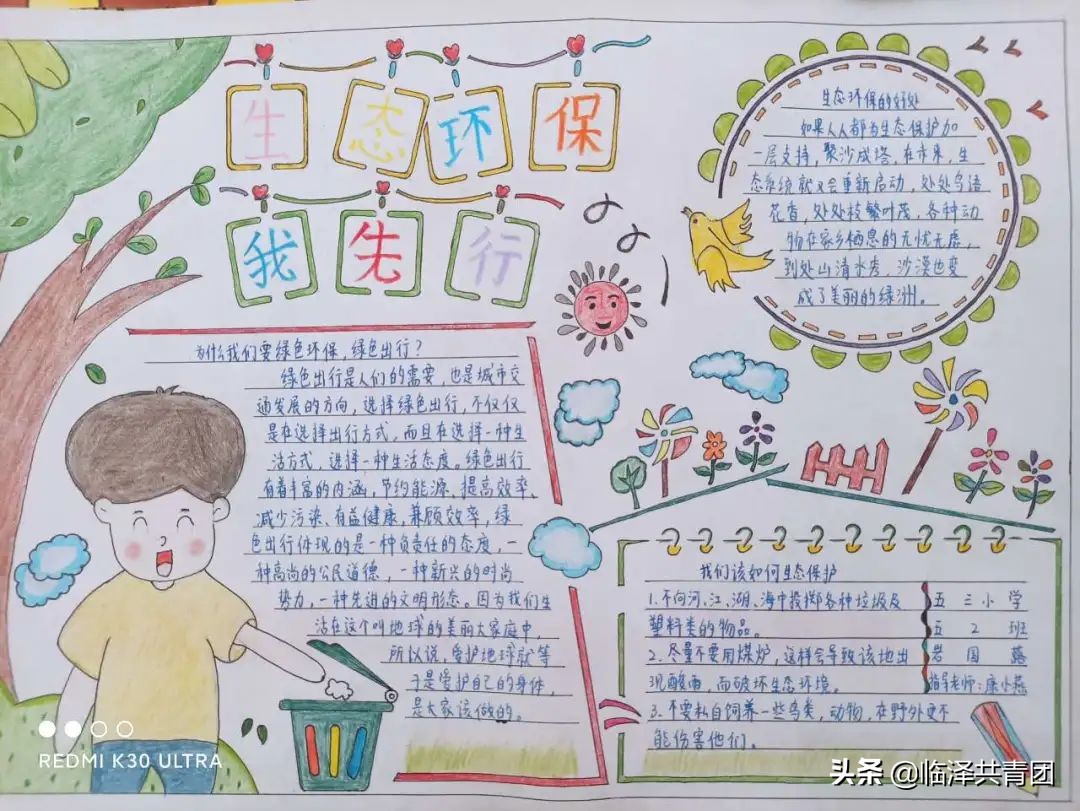 生态环保
我先行
生态环保的好处
如果人人都为生态保护加
一层支持，聚沙成塔，在市来，生
态系统就又会重新启动，处处鸟语
花香，处处枝繁叶茂，各种动
物在家乡栖息的无忧无虑，
到处山清水秀，沙漠也变
成了美丽的绿洲。
为什么我们要绿色环保，绿色出行？
绿色出行是人们的需要，也是城市交
通发展的方向，选择绿色出行，不仅仅
是在选择出行方式，而且在选择一种生
活方式，选择一种生活态度。绿色出行
有着丰富的内涵，节约能源、提高效率、
减少污染、有益健康，兼顾效率，绿
色出行体现的是一种负责任的态度，一
种高尚的公民道德，一种新兴的时尚
势力，一种先进的文明形态。因为我们生
活在这个叫地球的美丽大家庭中，
所以说，爱护地球就等
于是爱护自己的身体，
是大家该做的。
我们该如何生态保护
1.不向河、江、湖、海中投掷各种垃圾及
塑料类的物品。
2.尽量不要用煤炉，这样会导致该地出
现酸雨，而破坏生态环境。
3.不要私自饲养一些鸟类，动物，在野外更不
能伤害他们。
五三小学
五2班
岩国
指导老师：康小燕
REDMI K30 ULTRA
头条 @临泽共青团